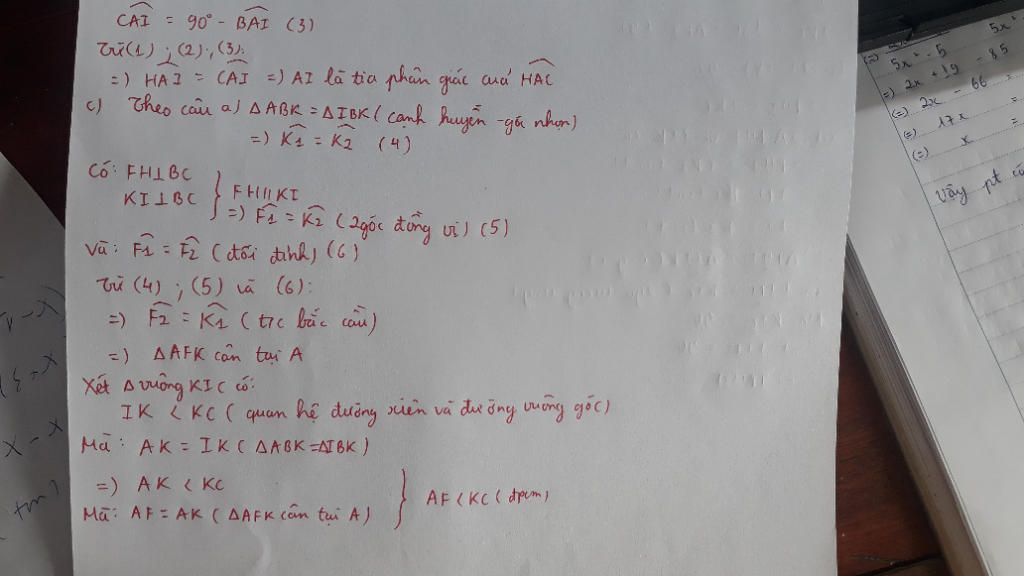 CAI = 90° - BAI (3)
Từ (1) ; (2) ; (3):
=) HAI = CAI =) AI là tia phân giác của HAC
c) Theo câu a) ΔABK = ΔIBK ( cạnh huyền - góc nhọn)
=) K1 = K2 (4)
Có: FH⊥BC
KI⊥BC } FH//KI
=) F1 = K2 (2 góc đồng vị) (5)
Và: F1 = F2 ( đối đỉnh) (6)
Từ (4) ; (5) và (6):
=) F2 = K1 ( t/c bắc cầu)
=) ΔAFK cân tại A
Xét Δ vuông KIC có:
IK < KC ( quan hệ đường xiên và đường vuông góc)
Mà: AK = IK ( ΔABK=ΔIBK )
=) AK < KC
Mà: AF = AK ( ΔAFK cân tại A) } AF < KC ( đpcm)
5x - 5 5x
=) 2x + 19 - 85
(=) 2x - 66 =
(=) 17x =
(=) x =
Vậy pt có